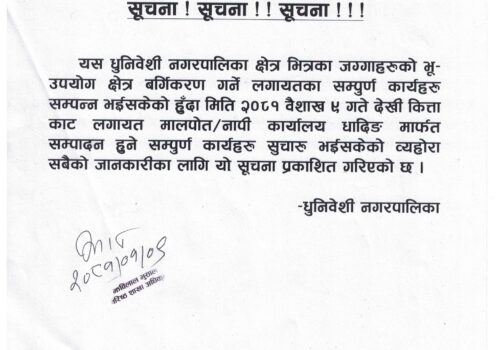 सूचना ! सूचना ! ! सूचना ! ! !
यस धुनिवेशी नगरपालिका क्षेत्र भित्रका जग्गाहरुको भू-
उपयोग क्षेत्र बर्गिकरण गर्ने लगायतका सम्पुर्ण कार्यहरु
सम्पन्न भईसकेको हुँदा मिति २०८१ वैशाख ५ गते देखी कित्ता
काट लगायत मालपोत/नापी कार्यालय धादिङ मार्फत
सम्पादन हुने सम्पुर्ण कार्यहरु सुचारु भईसकेको व्यहोरा
सबैको जानकारीका लागि यो सूचना प्रकाशित गरिएको छ ।
-धुनिवेशी नगरपालिका
२०८१/०१/०५